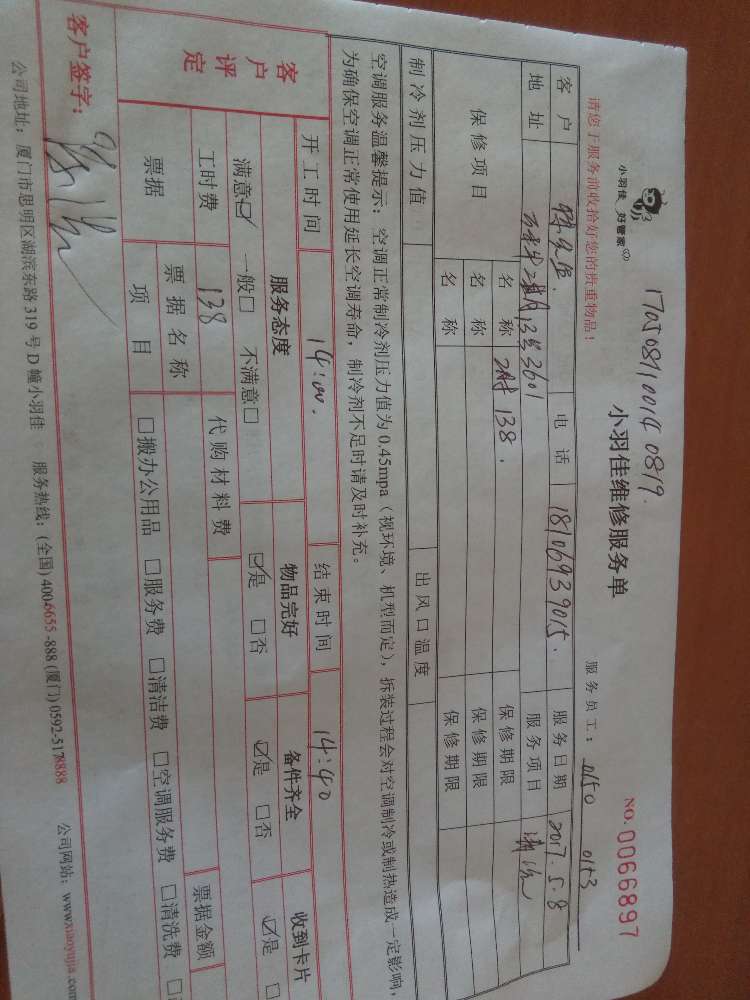 小羽佳 好管家
1705081100140819.
小羽佳维修服务单
NO. 0066897
请您于服务前收拾好您的贵重物品!
服务员工: 0150 0153
客户 电话 18106939015. 服务日期 2017.5.8
地址 13号3601 服务项目 清洗
保修项目 名称 138. 保修期限
名称 保修期限
名称 保修期限
制冷剂压力值 出风口温度
空调服务温馨提示:空调正常制冷剂压力值为0.45mpa(视环境、机型而定),拆装过程会对空调制冷或制热造成一定影响,
为确保空调正常使用延长空调寿命,制冷剂不足时请及时补充。
开工时间 14:00. 结束时间 14:40
客户评定 服务态度 物品完好 备件齐全 收到卡片
满意☑ 一般□ 不满意□ ☑是 □否 ☑是 □否 ☑是 □
工时费 138 代购材料费
票据 票据名称 票据金额
项目 □搬办公用品 □服务费 □清洁费 □空调服务费 □清洗费 □
客户签字:
公司地址:厦门市思明区湖滨东路319号D幢小羽佳 服务热线:(全国)4006655-888(厦门)0592-5178888 公司网站:www.xiaoyujia.com